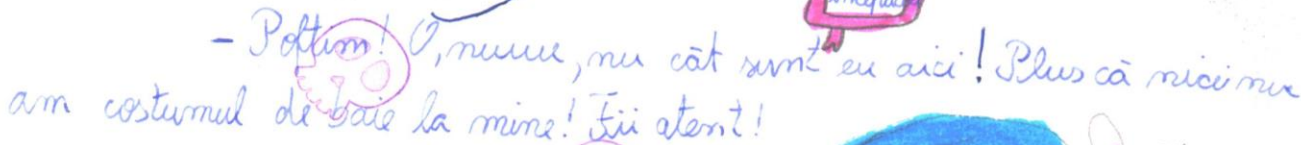 - Poftim! O, nuuu, nu cât sunt eu aici! Plus că nici nu
am costumul de baie la mine! Fii atent!